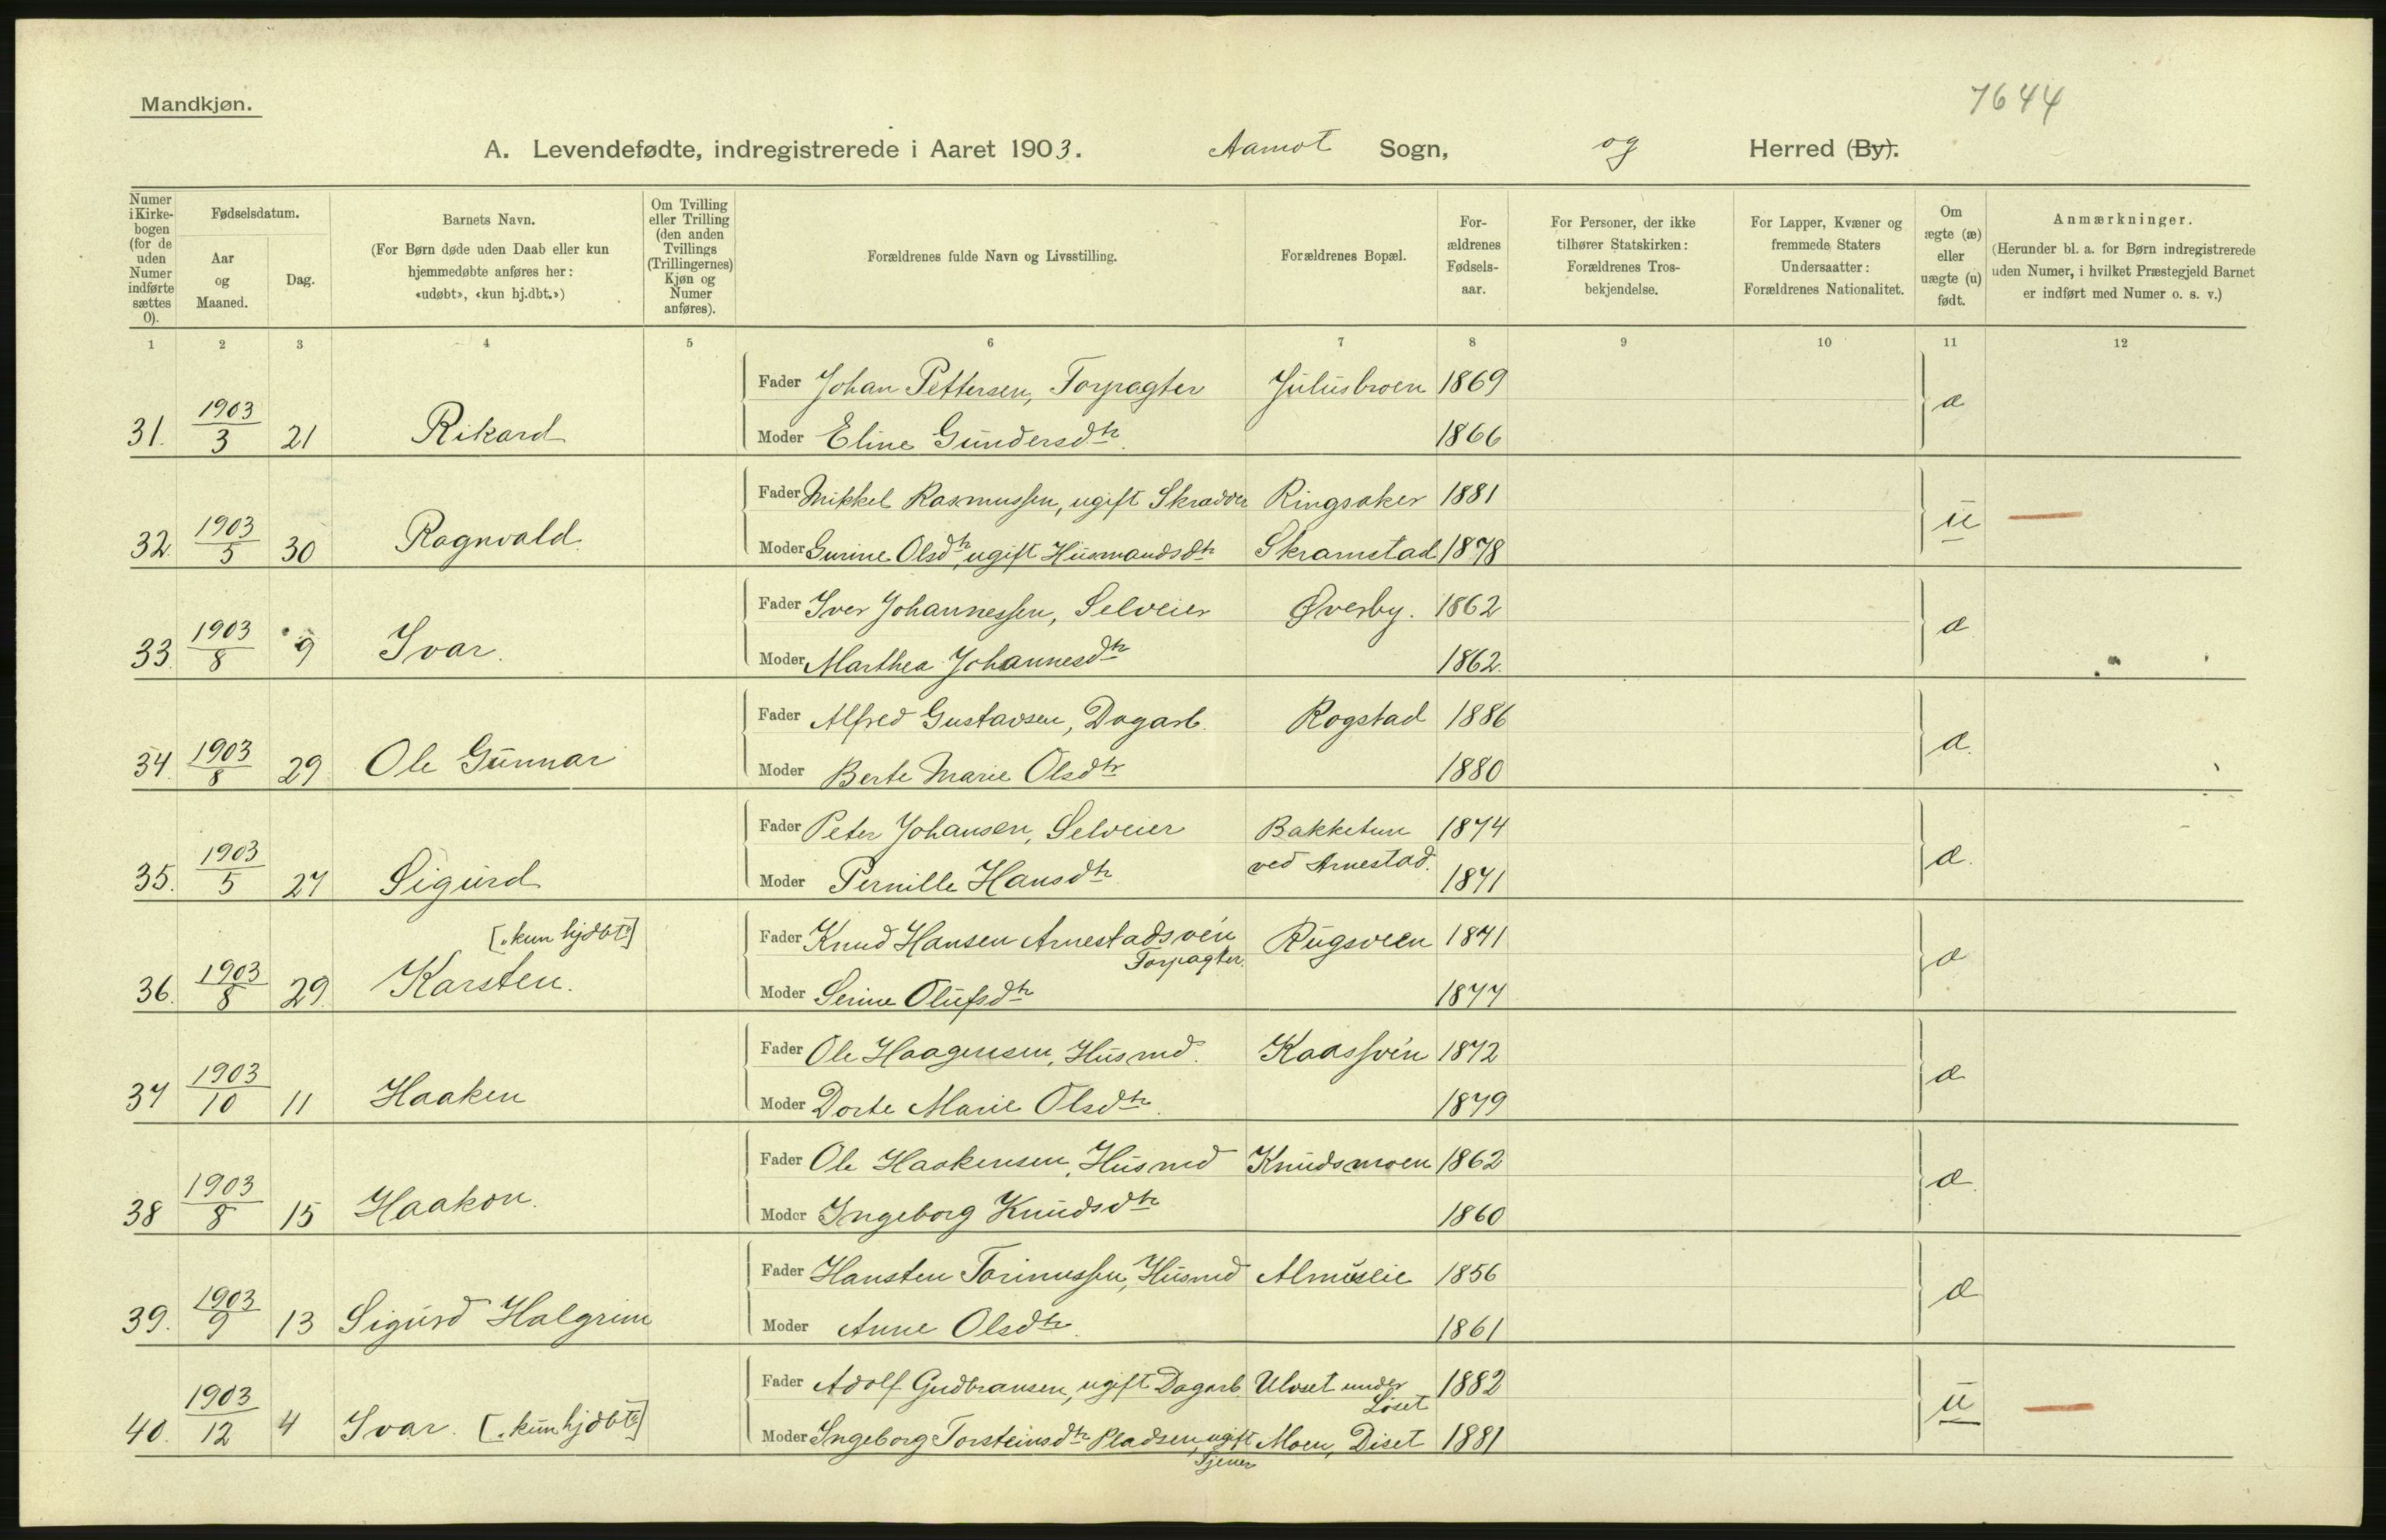 Mandkjøn.
7644
A. Levendefødte, indregistrerede i Aaret 1903. Aamot Sogn, og Herred (By).
Numer i Kirke-bogen (for de uden Numer indførte sættes 0).
Fødselsdatum.
Aar og Maaned.
Dag.
Barnets Navn.
(For Børn døde uden Daab eller kun hjemmedøbte anføres her: «udøbt», «kun hj.dbt.»)
Om Tvilling eller Trilling (den anden Tvillings (Trillingernes) Kjøn og Numer anføres).
Forældrenes fulde Navn og Livsstilling.
Forældrenes Bopæl.
For-ældrenes Fødsels-aar.
For Personer, der ikke tilhører Statskirken: Forældrenes Tros-bekjendelse.
For Lapper, Kvæner og fremmede Staters Undersaatter: Forældrenes Nationalitet.
Om ægte (æ) eller uægte (u) født.
Anmærkninger.
(Herunder bl. a. for Børn indregistrerede uden Numer, i hvilket Præstegjeld Barnet er indført med Numer o. s. v.)
1 2 3 4 5 6 7 8 9 10 11 12
Fader Johan Pettersen, Forpagter Juliusbroen 1869
31. 1903/3 21 Rikard æ
Moder Eline Gundersdtr. 1866
Fader Mikkel Rasmussen, ugift Skrædder Ringsaker 1881
32. 1903/5 30 Ragnvald u
Moder Gurine Olsdtr, ugift Husmandsdtr Skramstad 1878
Fader Iver Johannessen, Selveier Øverby. 1862
33. 1903/8 9 Ivar. æ
Moder Marthea Johannesdtr 1862.
Fader Alfred Gustavsen, Dagarb. Rogstad 1886
34. 1903/8 29 Ole Gunnar æ.
Moder Berte Marie Olsdtr 1880
Fader Peter Johansen, Selveier Bakketun 1874
ved Arnestad.
35. 1903/5 27 Sigurd æ.
Moder Pernille Hansdtr 1871
[„kun hjdbt“]
Fader Knud Hansen Arnestadsvén Rugsveen 1871
Forpagter.
36. 1903/8 29. Karsten. æ
Moder Serine Olufsdtr 1877
Fader Ole Haagensen, Husmd. Kaassvén 1872
37 1903/10 11 Haaken æ
Moder Dorte Marie Olsdtr. 1879
Fader Ole Haakensen, Husmd Knudsmoen 1862
38 1903/8 15 Haakon. æ.
Moder Ingeborg Knudsdtr 1860
Fader Hansten Torinussen, Husmd Almuslie 1856
39. 1903/9 13 Sigurd Halgrim æ
Moder Anne Olsdtr. 1861
Fader Adolf Gudbransen, ugift Dagarb. Ulvset under 1882
Löset
40. 1903/12 4 Ivar. [„kun hjdbt“] u
Moder Ingeborg Torsteinsdtr Pladsen, ugift Moen, Diset 1881
Tjener